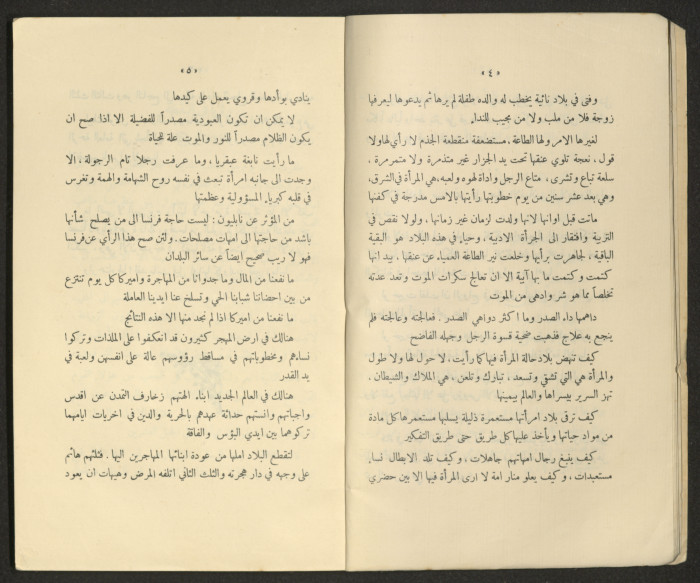 «٤»
وفتى في بلاد نائية يخطب له والده طفلة لم يرها ثم يدعوها ليعرفها
زوجة فلا من ملب ولا من مجيب للنداء
لغيرها الامر ولها الطاعة. مستضعفة منقطعة الجذم لا رأي لها ولا
قول، نعجة تلوي عنقها تحت يد الجزار غير متذمرة ولا متمرمرة،
سلعة تباع وتشرى، متاع الرجل واداة لهوه ولعبه، هي المرأة في الشرق،
وهي بعد عشر سنين من يوم خطوبتها رأيتها بالامس مدرجة في كفنها
ماتت قبل اوانها لانها ولدت لزمان غير زمانها، ولولا نقص في
التربية وافتقار الى الجرأة الادبية، وحياء في هذه البلاد هو البقية
الباقية، لجاهرت برأيها وخلعت نير الطاعة العمياء عن عنقها، بيد انها
كتمت وكتمت ما بها آبية الا ان تعالج سكرات الموت وتعد عدته
تخلصاً مما هو شر وادهى من الموت
داهمها داء الصدر وما اكثر دواهي الصدر. فعالجته وعالجته فلم
ينجع به علاج فذهبت ضحية قسوة الرجل وجهله الفاضح
كيف تنهض بلاد حالة المرأة فيها كما رأيت. لا حول لها ولا طول
والمرأة هي التي تشقي وتسعد، تبارك وتلعن، هي الملاك والشيطان.
تهز السرير بيسراها والعالم بيمينها
كيف ترقى بلاد امرأتها مستعمرة ذليلة يسلبها مستعمرها كل مادة
من مواد حياتها ويأخذ عليها كل طريق حتى طريق التفكير
كيف ينبغ رجال امهاتهم جاهلات، وكيف تلد الابطال نساء
مستعبدات، وكيف يعلو منار امة لا ارى المرأة فيها الا بين حضري
«٥»
ينادي بوأدها وقروي يعمل على كيدها
لا يمكن ان تكون العبودية مصدراً للفضيلة الا اذا صح ان
يكون الظلام مصدراً للنور والموت علة للحياة
ما رأيت نابغة عبقريا، وما عرفت رجلا تام الرجولة، الا
وجدت الى جانبه امرأة تبعث في نفسه روح الشهامة والهمة وتغرس
في قلبه كبرياء المسؤولية وعظمتها
من المؤثر عن نابليون: ليست حاجة فرنسا الى من يصلح شأنها
باشد من حاجتها الى امهات مصلحات. ولئن صح هذا الرأي عن فرنسا
فهو لا ريب صحيح ايضاً عن سائر البلدان
ما نفعنا من المال وما جدوانا من المهاجرة واميركا كل يوم تنتزع
من بين احضاننا شبابنا الحي وتسلخ عنا ايدينا العاملة
ما نفعنا من اميركا اذا لم نجد منها الا هذه النتائج
هنالك في ارض المهجر كثيرون قد انعكفوا على الملذات وتركوا
نساءهم ومخطوباتهم في مساقط رؤوسهم عالة على انفسهن ولعبة في
يد القدر
هنالك في العالم الجديد ابناء الهتهم زخارف التمدن عن اقدس
واجباتهم وانستهم حداثة عهدهم بالحرية والدين في اخريات ايامهما
تركوهما بين ايدي البؤس والفاقة
لتقطع البلاد املها من عودة ابنائها المهاجرين اليها. فثلثهم هائم
على وجهه في دار هجرته والثلث الثاني اتلفه المرض وهيهات ان يعود